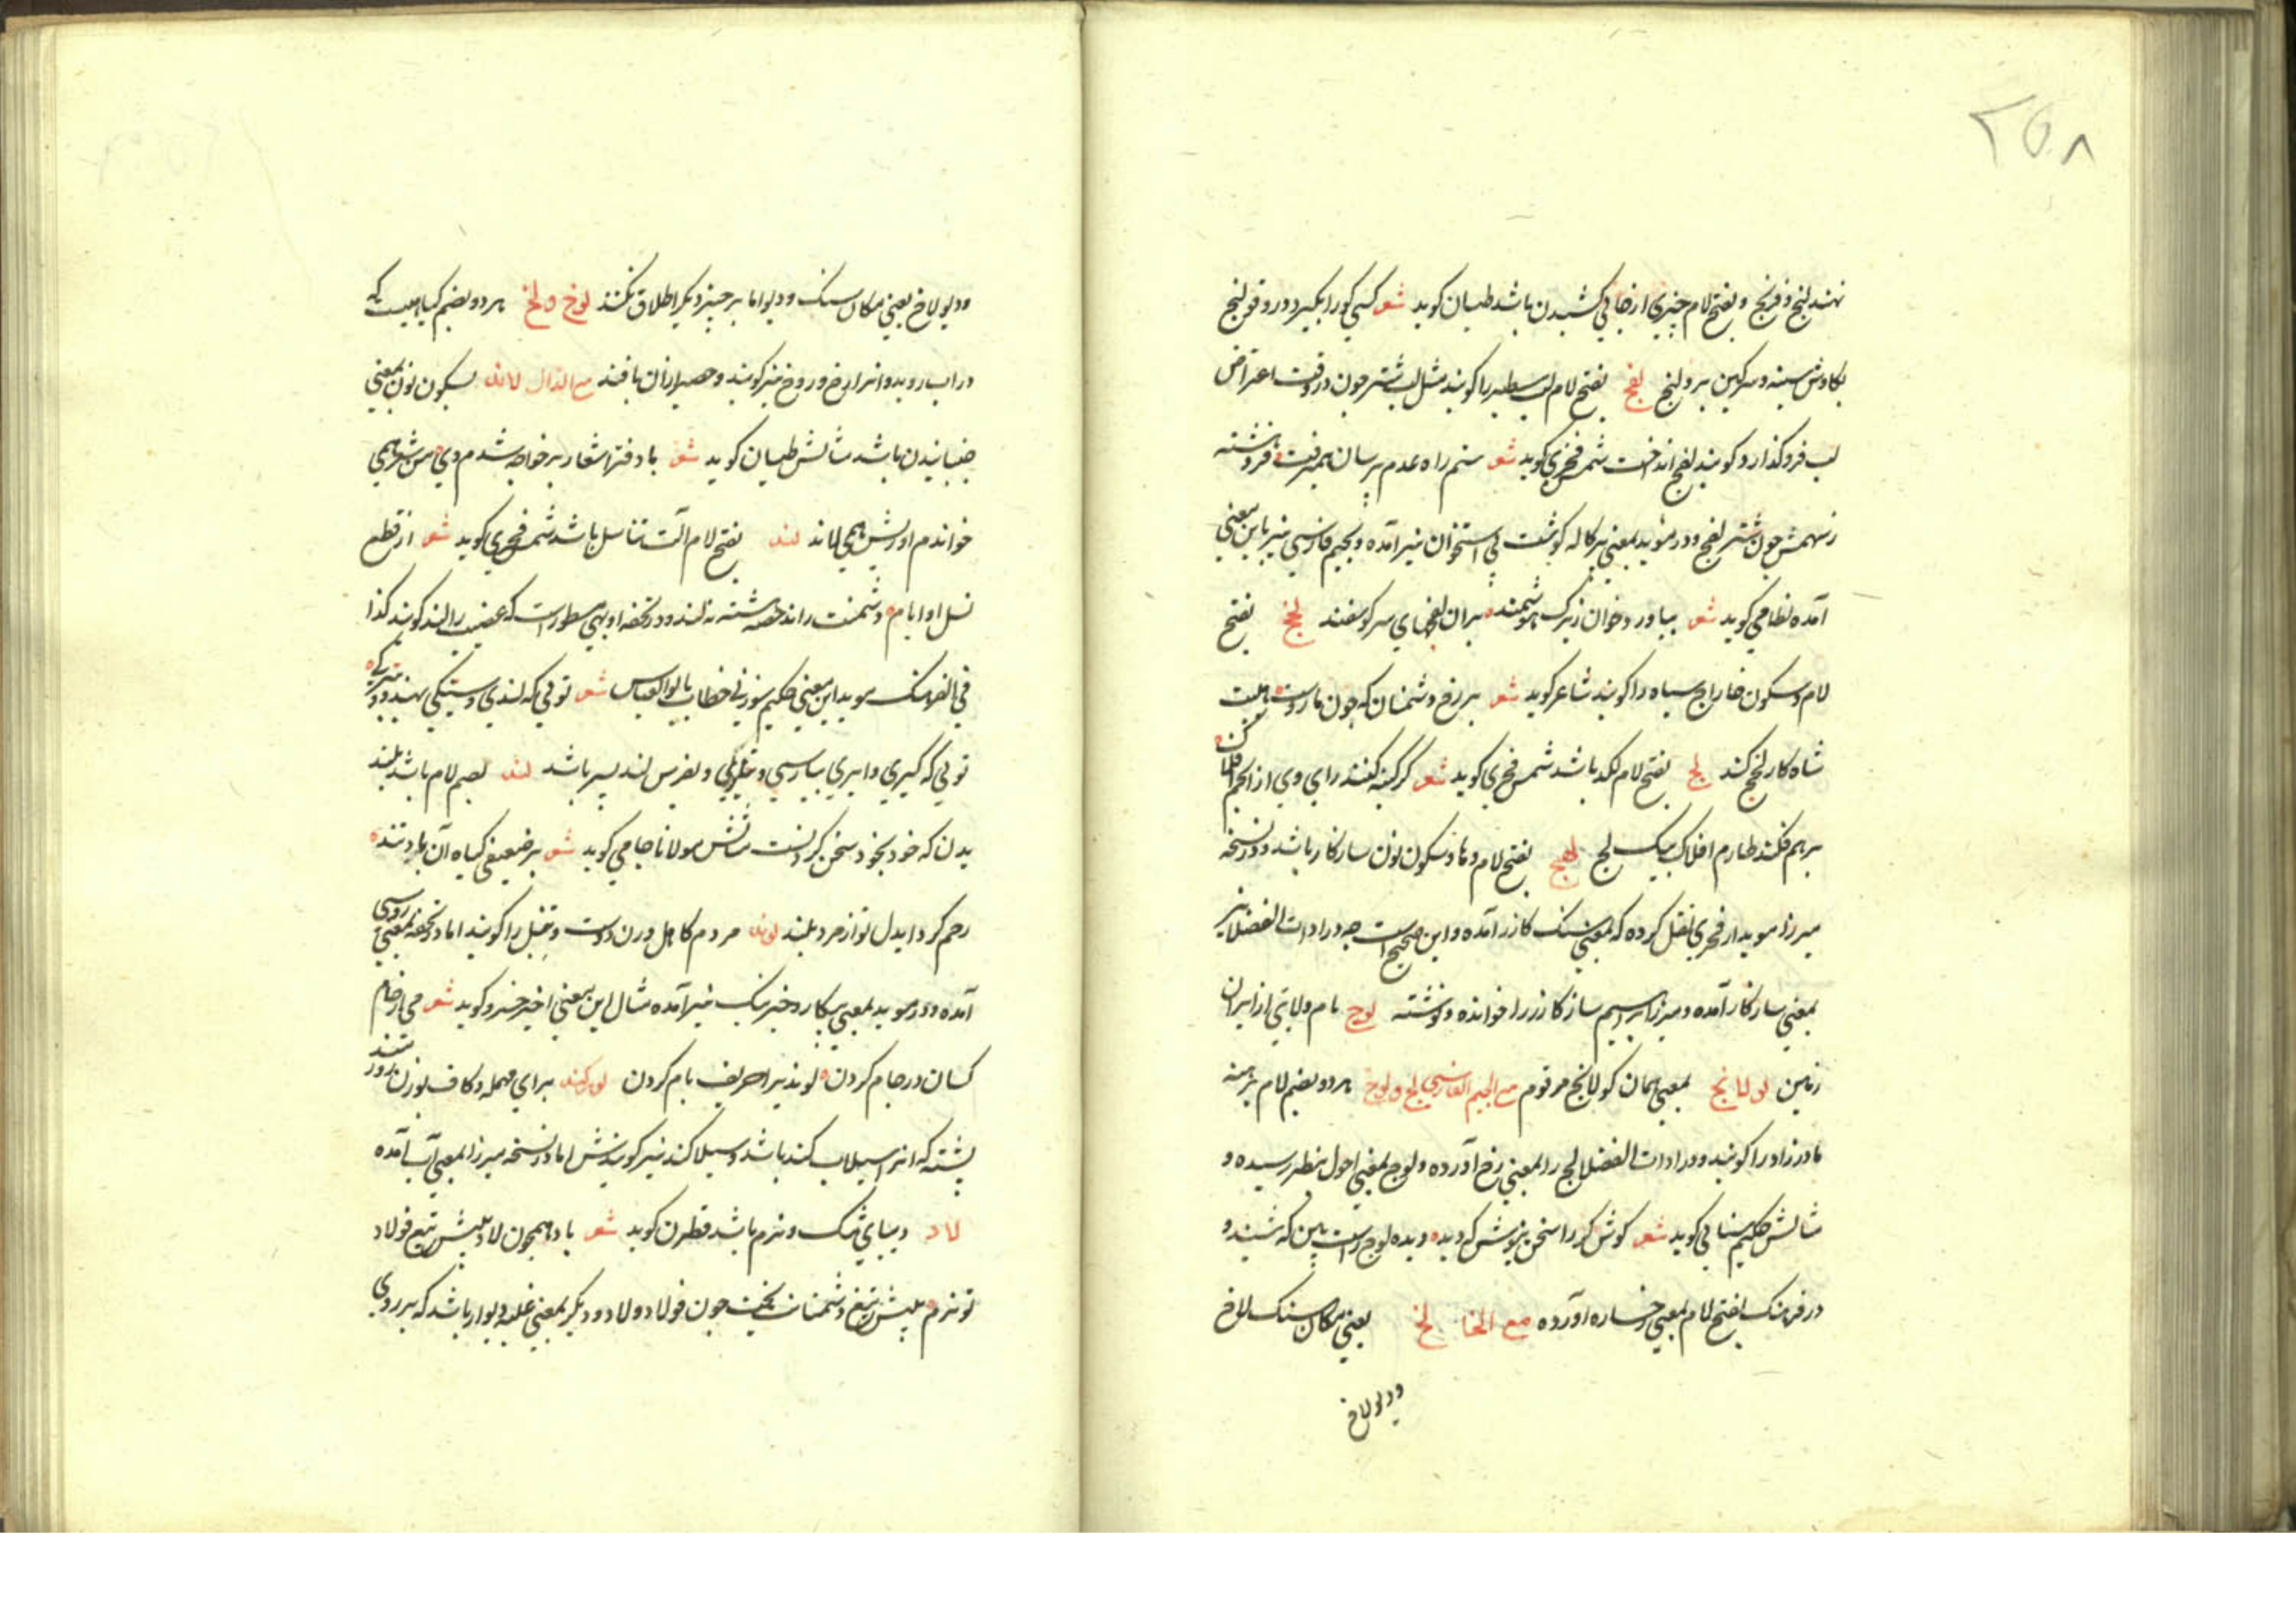 ۲۵۸
نهند لنج و فرنج و بفتح لام چیزی از جائی کشیدن باشد طیان کوید شعر کسی کو را بکیرد درد قولنج
بکاوش سینه و سرکین برو لنج لفج بفتح لام لب سطبر را کویند مثل لب شتر چون در وقت اعتراض
لب فرو کذارد کویند لفج انداخت شمس فخری کوید شعر ستم راه عدم پرسان همیرفت فرو هشته
ز سهمش چون شتر لفج و در موید بمعنی پرکاله کوشت بی استخوان نیز آمده و بجیم فارسی نیز باین معنی
آمده نظامی کوید شعر بیاورد خوان زیرک هوشمند بران لفجهای سر کوسفند لخج بفتح
لام و سکون خا زاج سیاه را کویند شاعر کوید شعر بر رخ دشمنان که چون مار است هیبت
شاه کار لخج کند لج بفتح لام لکد باشد شمس فخری کوید شعر کر کینه کند رای وی از انجم و افلاک
برهم فکند طارم افلاک بیک لج لهنج بفتح لام و ها و سکون نون سازکار باشد و در نسخه
میرزا موید از فخری نقل کرده که بمعنی سنک کازر آمده و این صحیح است چه در ادات الفضلا نیز
بمعنی سازکار آمده و میرزا ابراهیم ساز کازر را خوانده و نوشته لوج نام ولایتی از ایران
زمین لولانج بمعنی همان کولانج مرقوم مع الجیم الفارسی لج و لوج هر دو بضم لام برهنه
مادرزاد را کویند و در ادات الفضلا لج را بمعنی رخ آورده و لوج بمعنی احول بنظر رسیده و
مثالش حکیم سنائی کوید شعر کوش کر را سخن نیوش که دید دیده لوج راست بین که شنید و
در فرهنک بفتح لام بمعنی رخساره آورده مع الخا لخ یعنی مکان سنک لاخ
و دیولاخ
و دیولاخ یعنی مکان سنک و دیو اما بر چیز دیکر اطلاق نکنند لوخ و لخ هر دو بضم کیاهیست که
در آب روید و انرا رخ و روخ نیز کویند و حصیر از آن بافند مع الدال لاند بسکون نون بمعنی
جنبانیدن باشد مثالش طیان کوید شعر با دفتر اشعار بر خواجه شدم دی من شعر همی
خواندم او ریش همی لاند لند بفتح لام آلت تناسل باشد شمس فخری کوید شعر از قطع
نسل او ایام دشمنت را نه خصیه هشته نه لند و در تحفه اوبهی مسطور است که عضیب را لند کویند کذا
فی الفرهنک موید این معنی حکیم سوزنی خطاب بابوالعباس شعر توئی که لندی و ستیکی بهندوی و بترکی
توئی که کیری و ایری بپارسی و لند پسر باشد لند بضم لام باشد بلند
بدن که خود بخود سخن کردنست مثالش مولانا جامی کوید شعر بر ضعیفی کیاه آن باد تند
رحم کرد ایدل تو از مرد بلند لوند مردم کاهل و زن دوست و تنبل را کویند اما در تحفه بمعنی روسپی
آمده و در موید بمعنی بیکار و خبرنک نیز آمده مثال این معنی امیر خسرو کوید شعر می از جام
کسان در جام کردن لوندیرا حریف نام کردن لورکند برای مهمله و کاف بوزن زورمند
پشته که انرا سیلاب کنده باشد و سیلاکند نیز کویندش اما در نسخه میرزا بمعنی آب آمده
لاد دیبای تنک و نرم باشد قطران کوید شعر باد همچون لاد پیش تیغ فولاد
تو نرم پیش تیغ دشمنانت خشت چون فولاد و لاد و دیکر بمعنی غلبه دیوار باشد که بر روی